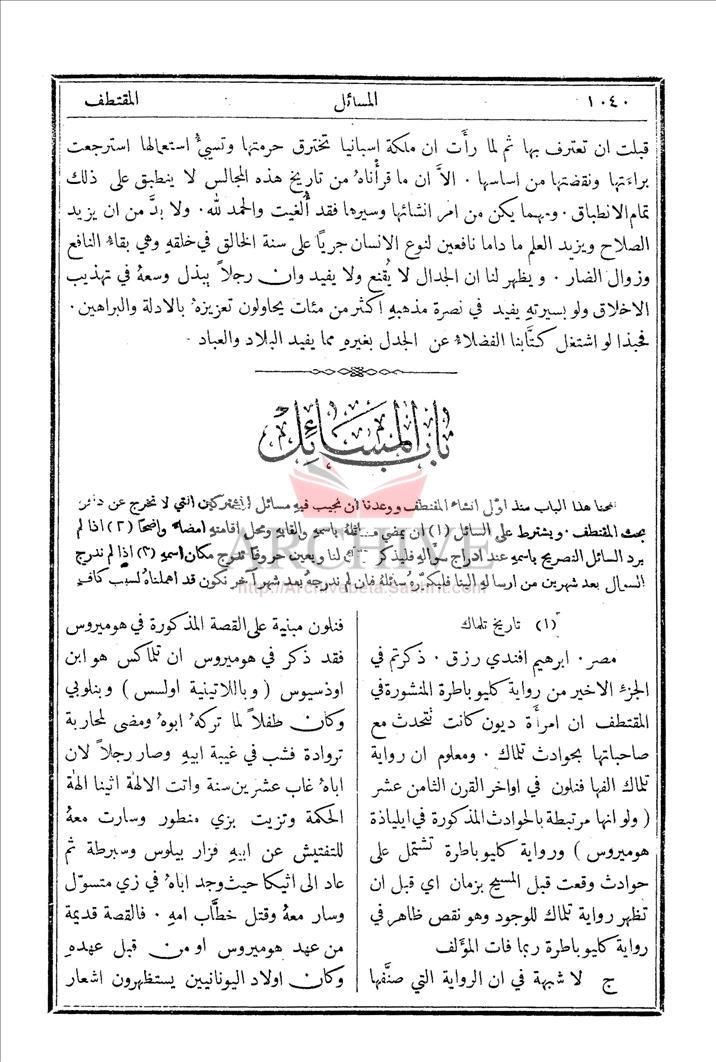 ١٠٤٠ المسائل المقتطف
قبلت ان تعترف بها ثم لما رأَت ان ملكة اسبانيا تخترق حرمتها وتسيءُ استعمالها استرجعت
براءَتها ونقضتها من اساسها . الاَّ ان ما قرأْناهُ من تاريخ هذه المجالس لا ينطبق على ذلك
تمام الانطباق . ومهما يكن من امر انشائها وسيرها فقد أُلغيت والحمد لله . ولا بدَّ من ان يزيد
الصلاح ويزيد العلم ما داما نافعين لنوع الانسان جريًا على سنة الخالق في خلقهِ وهي بقاءُ النافع
وزوال الضار . ويظهر لنا ان الجدال لا يُقنع ولا يفيد وان رجلاً يبذل وسعهُ في تهذيب
الاخلاق ولو بسيرتهِ يفيد في نصرة مذهبهِ اكثر من مئات يحاولون تعزيزهُ بالادلة والبراهين .
فحبذا لو اشتغل كتَّابنا الفضلاءُ عن الجدل بغيرهِ مما يفيد البلاد والعباد .
باب المسائل
فتحنا هذا الباب منذ اوَّل انشاء المقتطف ووعدنا ان نجيب فيهِ مسائل المشتركين التي لا تخرج عن دائرة
بحث المقتطف . ويشترط على السائل (١) ان يمضي مسائلهُ باسمهِ والقابهِ ومحل اقامتهِ امضاءً واضحًا (٢) اذا لم
يرد السائل التصريح باسمهِ عند ادراج سؤالهِ فليذكر ذلك لنا ويعين حروفًا تدرج مكان اسمهِ (٣) اذا لم ندرج
السوال بعد شهرين من ارسالهِ الينا فليكرّرهُ سائلهُ فان لم ندرجهُ بعد شهر آخر نكون قد اهملناهُ لسبب كافٍ
ARCHIVE
http://Archivebeta.Sakhrit.com
(١) تاريخ تلماك
مصر . ابرهيم افندي رزق . ذكرتم في
الجزءِ الاخير من رواية كليوباطرة المنشورة في
المقتطف ان امرأَة ديون كانت تتحدث مع
صاحباتها بحوادث تلماك . ومعلوم ان رواية
تلماك الفها فنلون في اواخر القرن الثامن عشر
( ولو انها مرتبطة بالحوادث المذكورة في ايلياذة
هوميروس ) ورواية كليوباطرة تشتمل على
حوادث وقعت قبل المسيح بزمان اي قبل ان
تظهر رواية تلماك للوجود وهو نقص ظاهر في
رواية كليوباطرة ربما فات المؤلف
ج لا شبهة في ان الرواية التي صنَّفها
فنلون مبنية على القصة المذكورة في هوميروس
فقد ذكر في هوميروس ان تلماكس هو ابن
اوذسيوس ( وباللاتينية اولسس ) وبنلوبي
وكان طفلاً لما تركهُ ابوهُ ومضى لمحاربة
تروادة فشب في غيبة ابيهِ وصار رجلاً لان
اباهُ غاب عشرين سنة واتت الالهة اثينا الهة
الحكمة وتزيت بزي منطور وسارت معهُ
للتفتيش عن ابيهِ فزار بيلوس وسبرطة ثم
عاد الى اثيكا حيث وجد اباهُ في زي متسوّل
وسار معهُ وقتل خطَّاب امهِ . فالقصة قديمة
من عهد هوميروس او من قبل عهدهِ
وكان اولاد اليونانيين يستظهرون اشعار